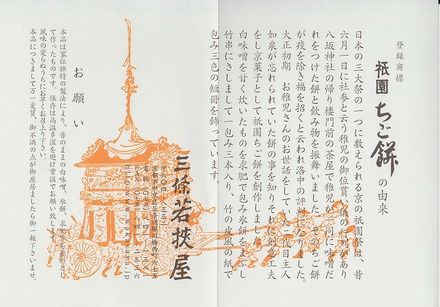 登録商標
祇園ちご餅の由来
日本の三大祭の一つに数えられる京の祇園祭は、昔
六月一日に社参と云う稚児の御位貰いの儀の行列があり
八坂神社の帰り楼門前の茶屋で稚児が一同に味噌だ
れをつけた餅と飲み物を振舞いました。そのちご餅
が疫を除き福を招くと云われ洛中の評判になりました。
大正初期 お稚児さんのお世話をして
知泉が忘れられていた餅の事を知りそれに創意工夫
をし京菓子として祇園ちご餅を創作しました。
白味噌を甘く炊いたものを求肥で包み氷餅をまぶし
竹串にさしまして一包み三本入り、竹の皮風の紙で
包み三色の短冊を飾っています。
三條若狹屋
お願い
本品は家伝独特の製法により、昔のままの白味噌、氷餅、求肥を素材とし
て作ったものです。保存は高温多湿を避け常温でお願い致します。
風味の変らぬうちにお早くお召上り下さい。
本品につきまして万一変質、御不満の点が御座居ましたら御一報下さいませ。